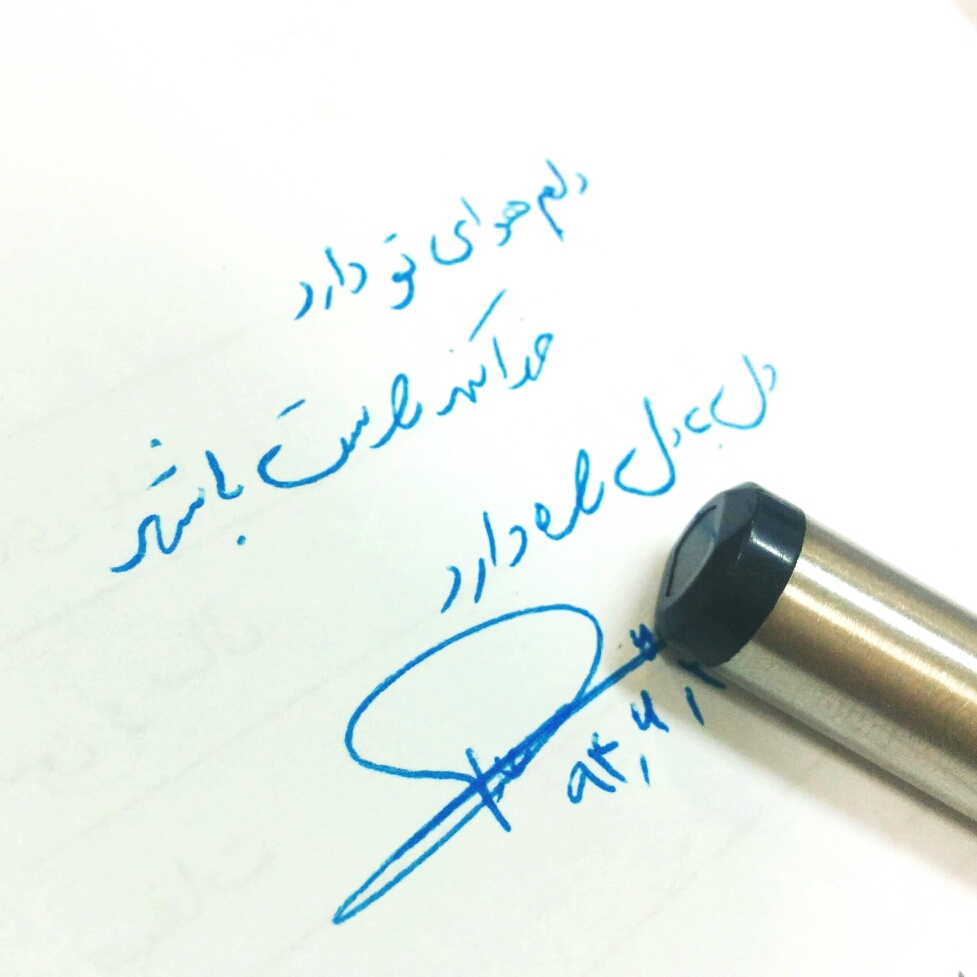 دلم هوای تو دارد
خدا کند راست باشد
دل به دل راه دارد